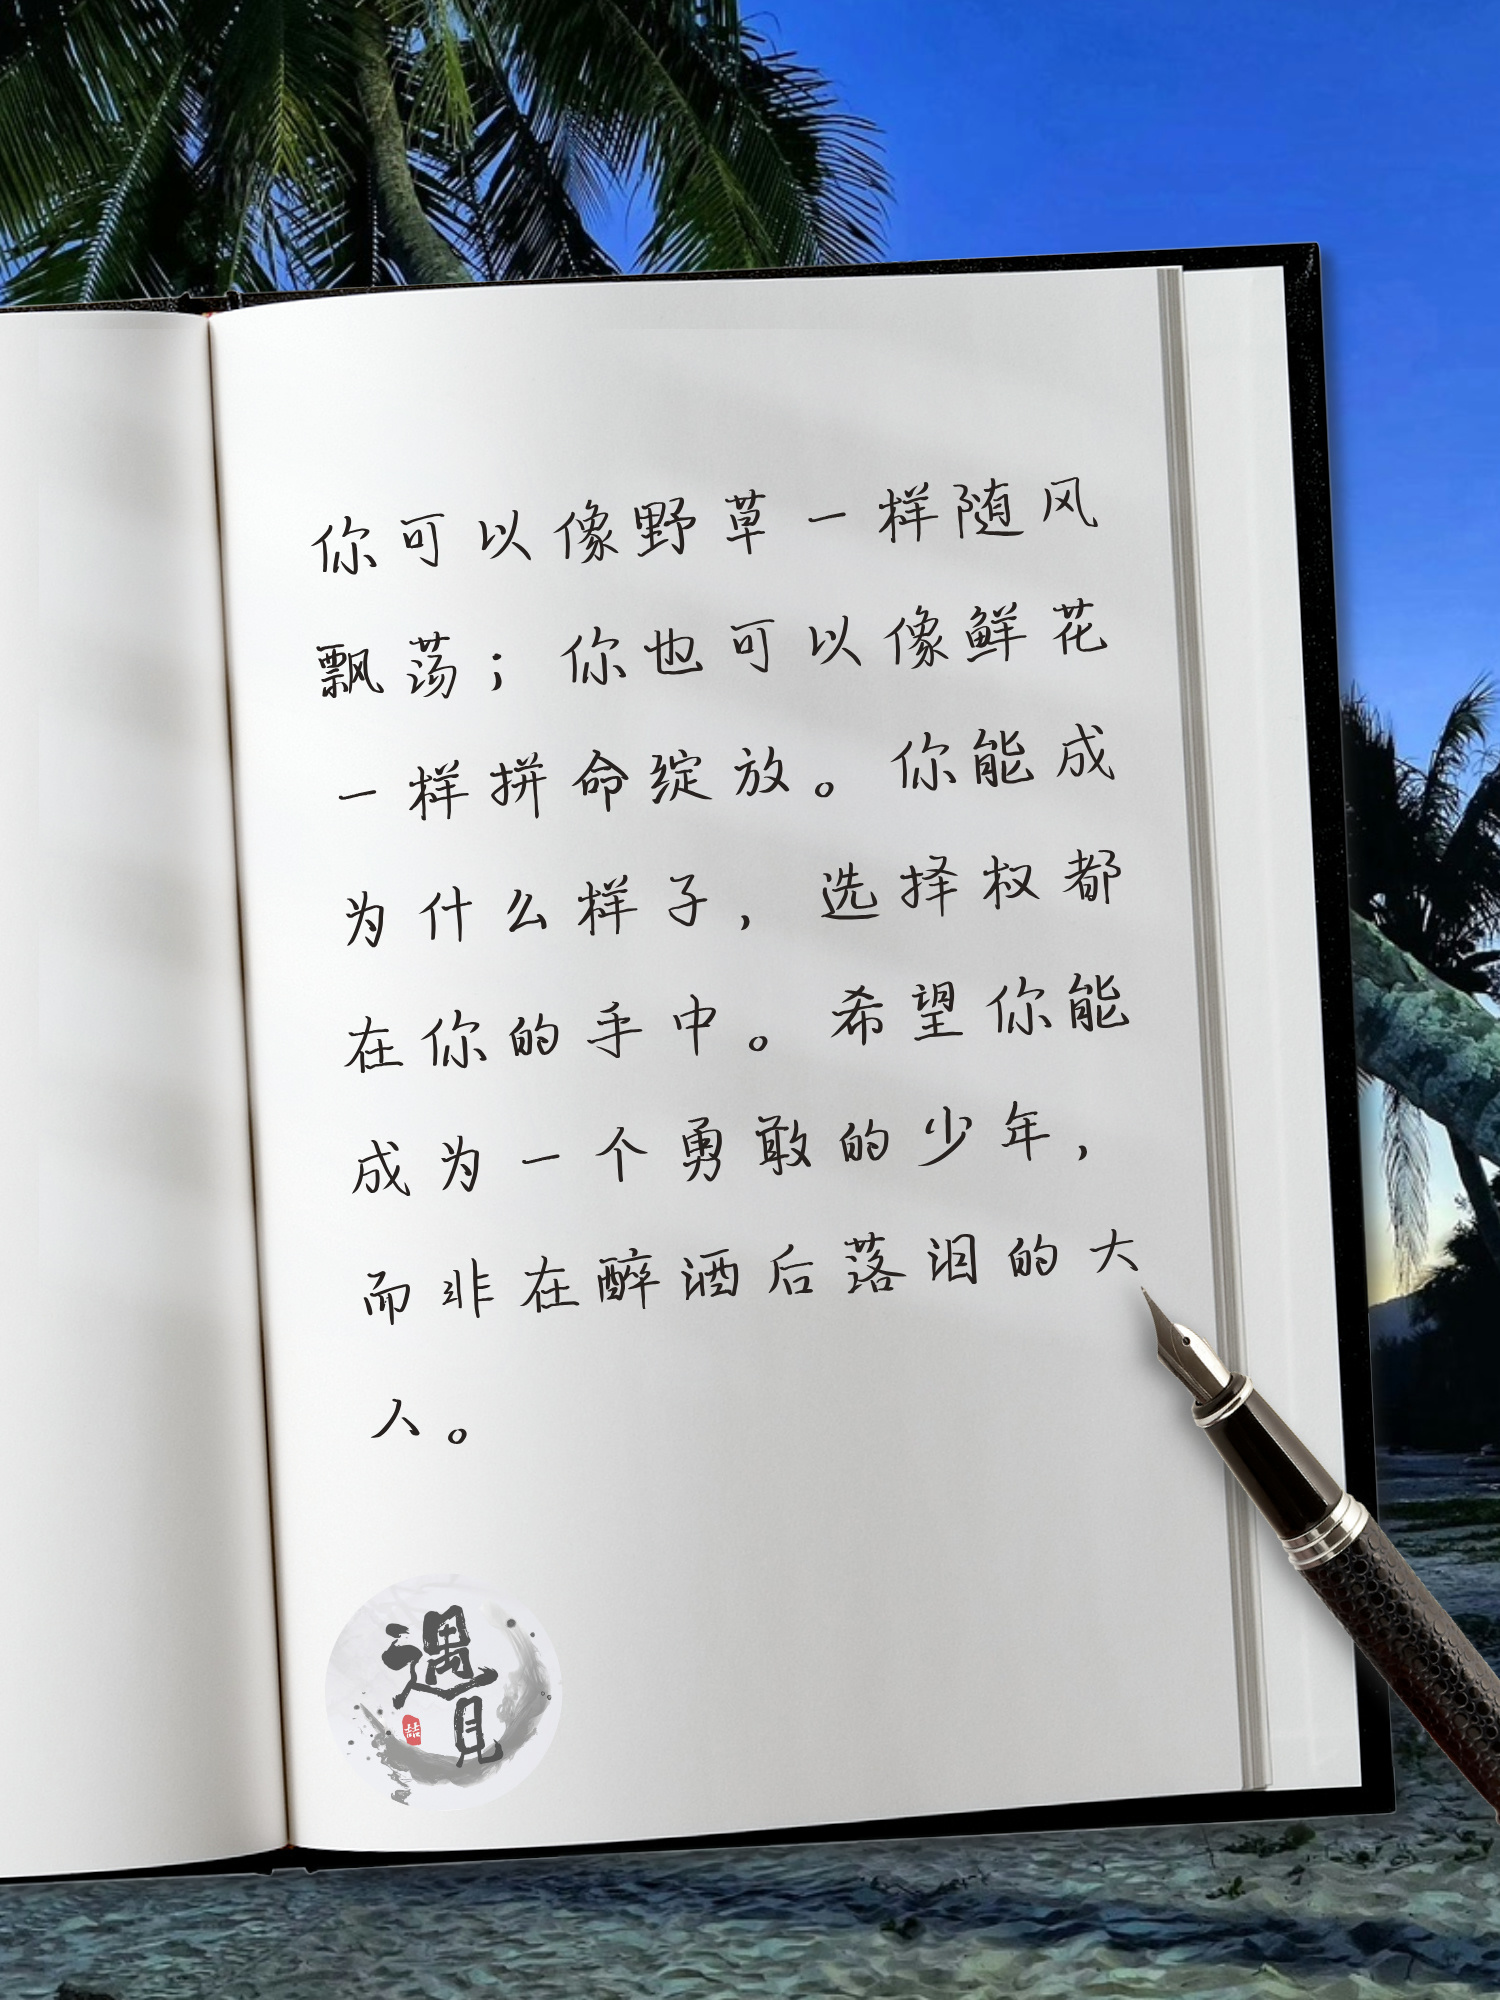 你可以像野草一样随风
飘荡；你也可以像鲜花
一样拼命绽放。你能成
为什么样子，选择权都
在你的手中。希望你能
成为一个勇敢的少年，
而非在醉酒后落泪的大
人。
遇
见
喆